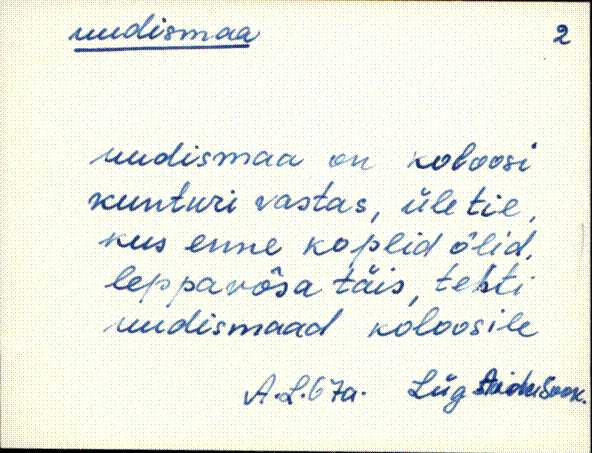 uudismaa
2
uudismaa on koloosi
kunturi vastas, üle tie,
kus enne koplid õlid,
leppavõsa täis, tehti
uudismaad koloosile
A.L. 67a. Lüg